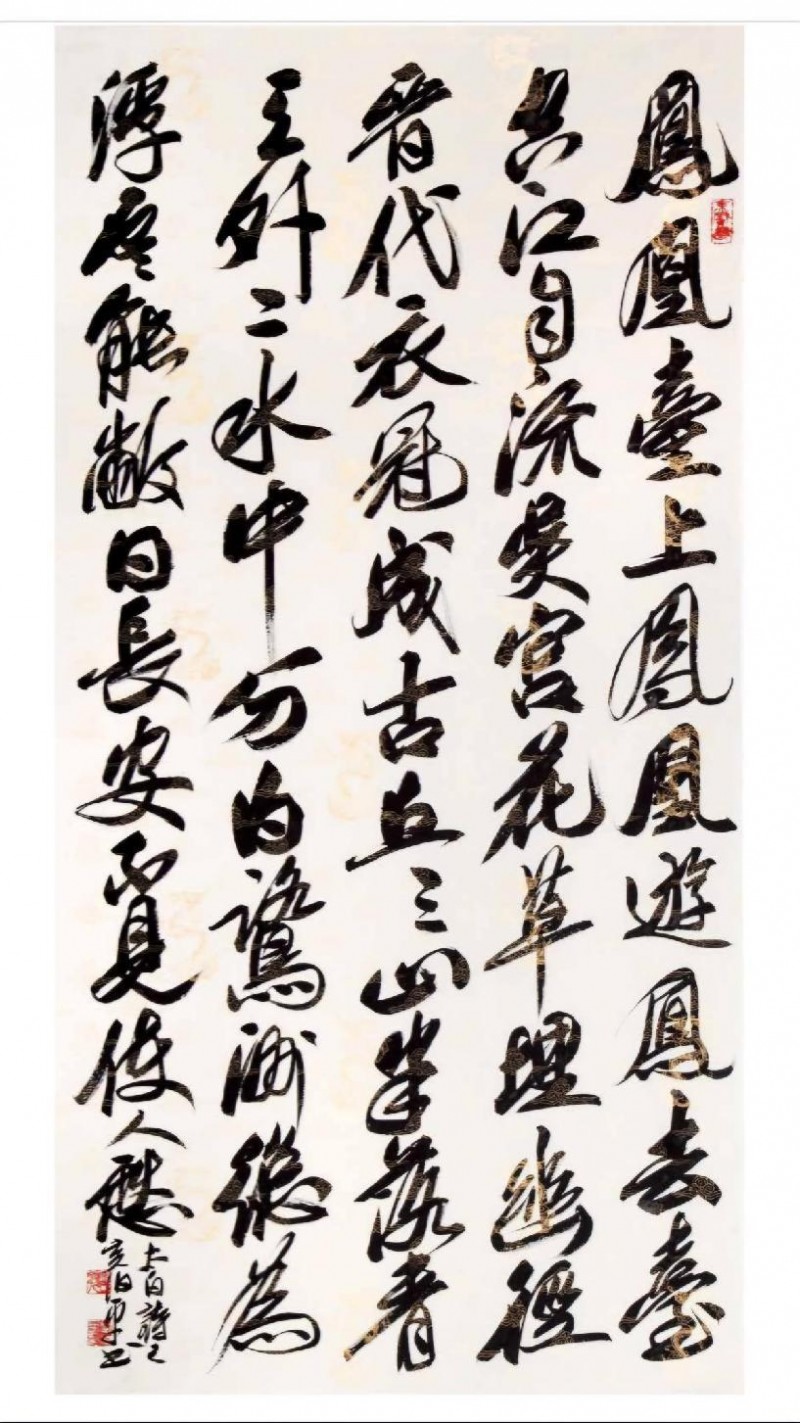 鳳凰臺上鳳凰遊鳳去臺
空江自流吳宮花草埋幽徑
晉代衣冠成古丘三山半落青
天外二水中分白鷺洲總為
浮雲能蔽日長安不見使人愁
白詩
亥書